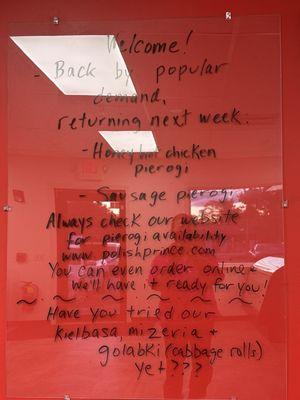 Welcome!
- Back by popular
demand,
returning next week:
- Honey hot chicken
pierogi
- Sausage pierogi
Always check our website
for pierogi availability
www.polishprince.com
You can even order online +
we'll have it ready for you!
~ ~ ~ ~ ~ ~ ~
Have you tried our
kielbasa, mizeria +
golabki (cabbage rolls)
yet???